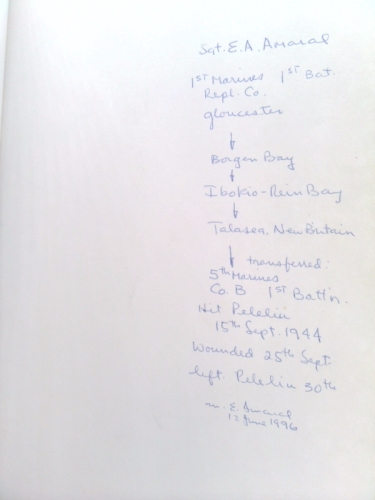 Sgt. E.A. Amaral
1ST Marines 1ST Bat.
Repl. Co.
Gloucester
Borgen Bay
Iboki-Rein Bay
Talasea, New Britain
transferred:
5th Marines
Co. B 1ST Batt'n.
Hit Peleliu
15th Sept. 1944
Wounded 25th Sept.
left Peleliu 30th
E. Amaral
12 June 1996